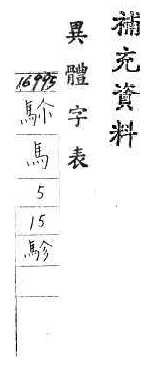 補充資料
異體字表
16995
馬
5
15
駗